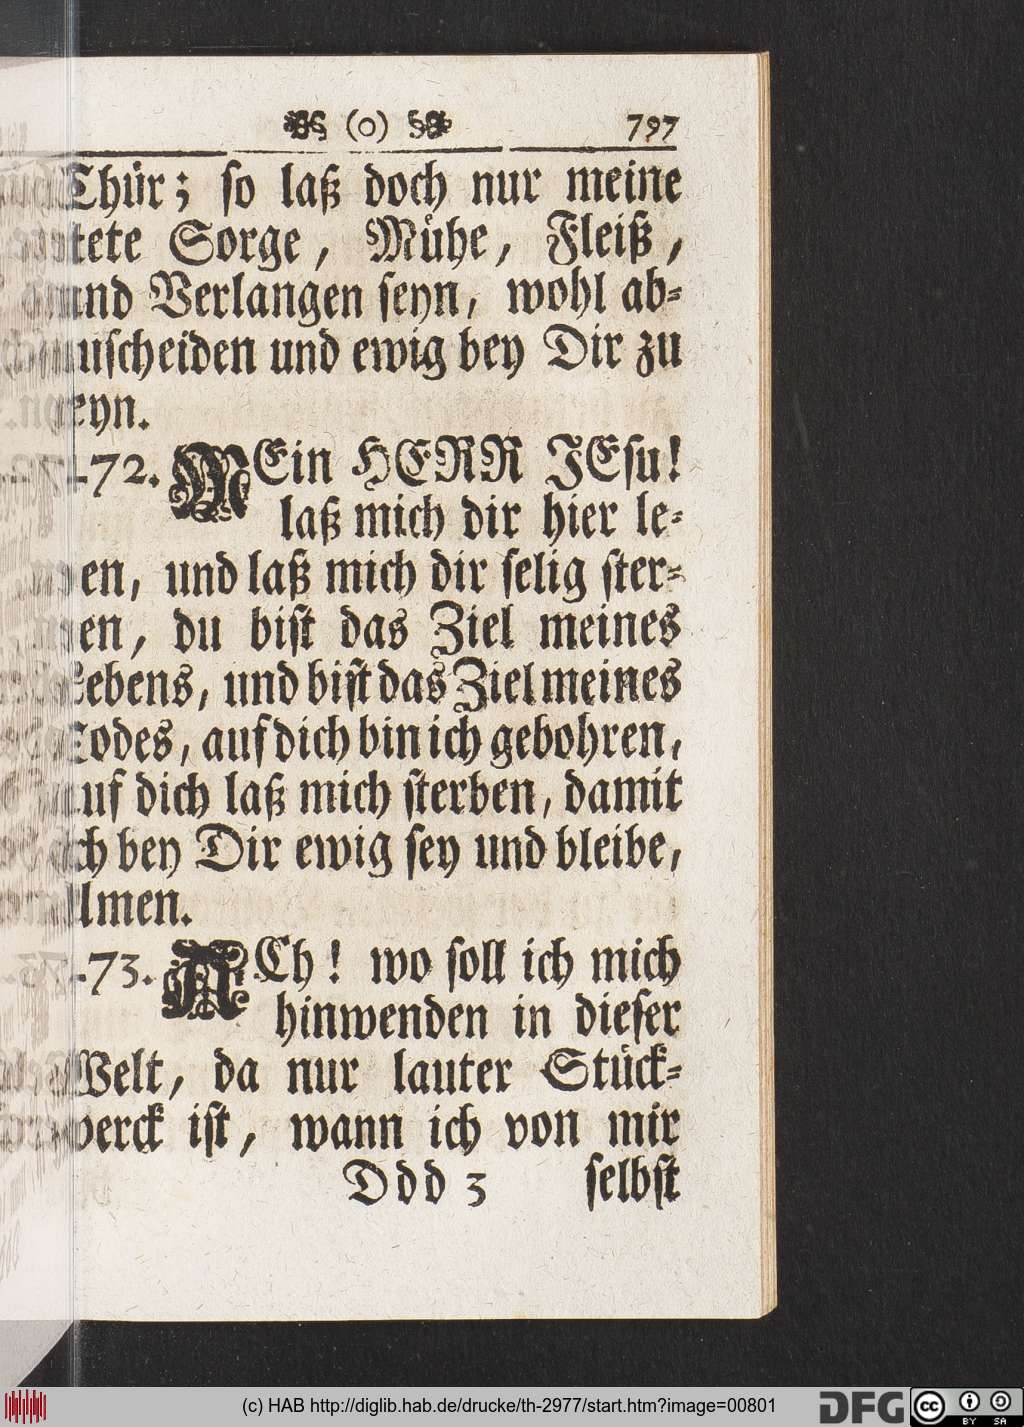 (o) 797
Thür; so laß doch nur meine
tete Sorge, Mühe, Fleiß,
und Verlangen seyn, wohl ab-
uscheiden und ewig bey Dir zu
eyn.
72. MEin HERR JEsu!
laß mich dir hier le-
en, und laß mich dir selig ster-
en, du bist das Ziel meines
Lebens, und bist das Ziel meines
Todes, auf dich bin ich gebohren,
auf dich laß mich sterben, damit
ich bey Dir ewig sey und bleibe,
Amen.
73. ACh! wo soll ich mich
hinwenden in dieser
Welt, da nur lauter Stück-
werck ist, wann ich von mir
Ddd 3 selbst
(c) HAB http://diglib.hab.de/drucke/th-2977/start.htm?image=00801
DFG
cc BY SA